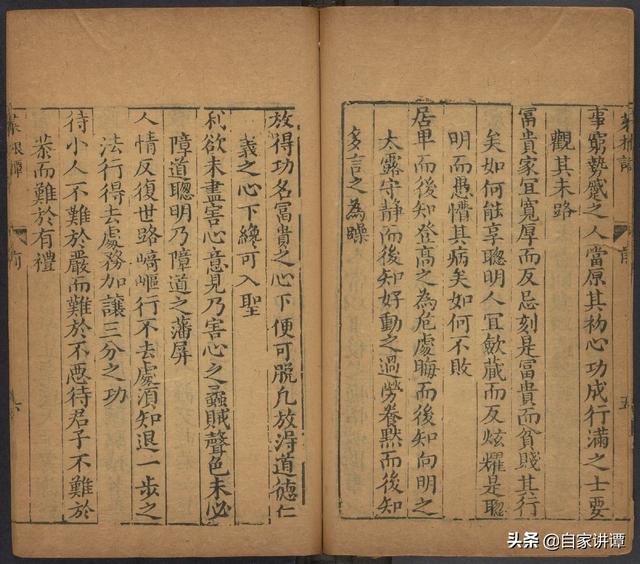 菜根譚 前 五
事窮勢蹙之人當原其初心功成行滿之士要
觀其末路
冨貴家冝寬厚而反忌刻是冨貴而貧賤其行
矣如何能享聰明人冝斂藏而反炫耀是聰
明而愚懵其病矣如何不敗
居卑而後知登高之為危處晦而後知向明之
太露守靜而後知好動之過勞養默而後知
多言之為躁
放得功名冨貴之心下便可脫凡放淂道德仁
義之心下纔可入聖
利欲未盡害心意見乃害心之蟊賊聲色未必
障道聰明乃障道之藩屏
人情反復世路崎嶇行不去處湏知退一步之
法行得去處務加讓三分之功
待小人不難於嚴而難於不悪待君子不難於
恭而難於有禮
菜根譚 前 六
头条 @自家讲谭